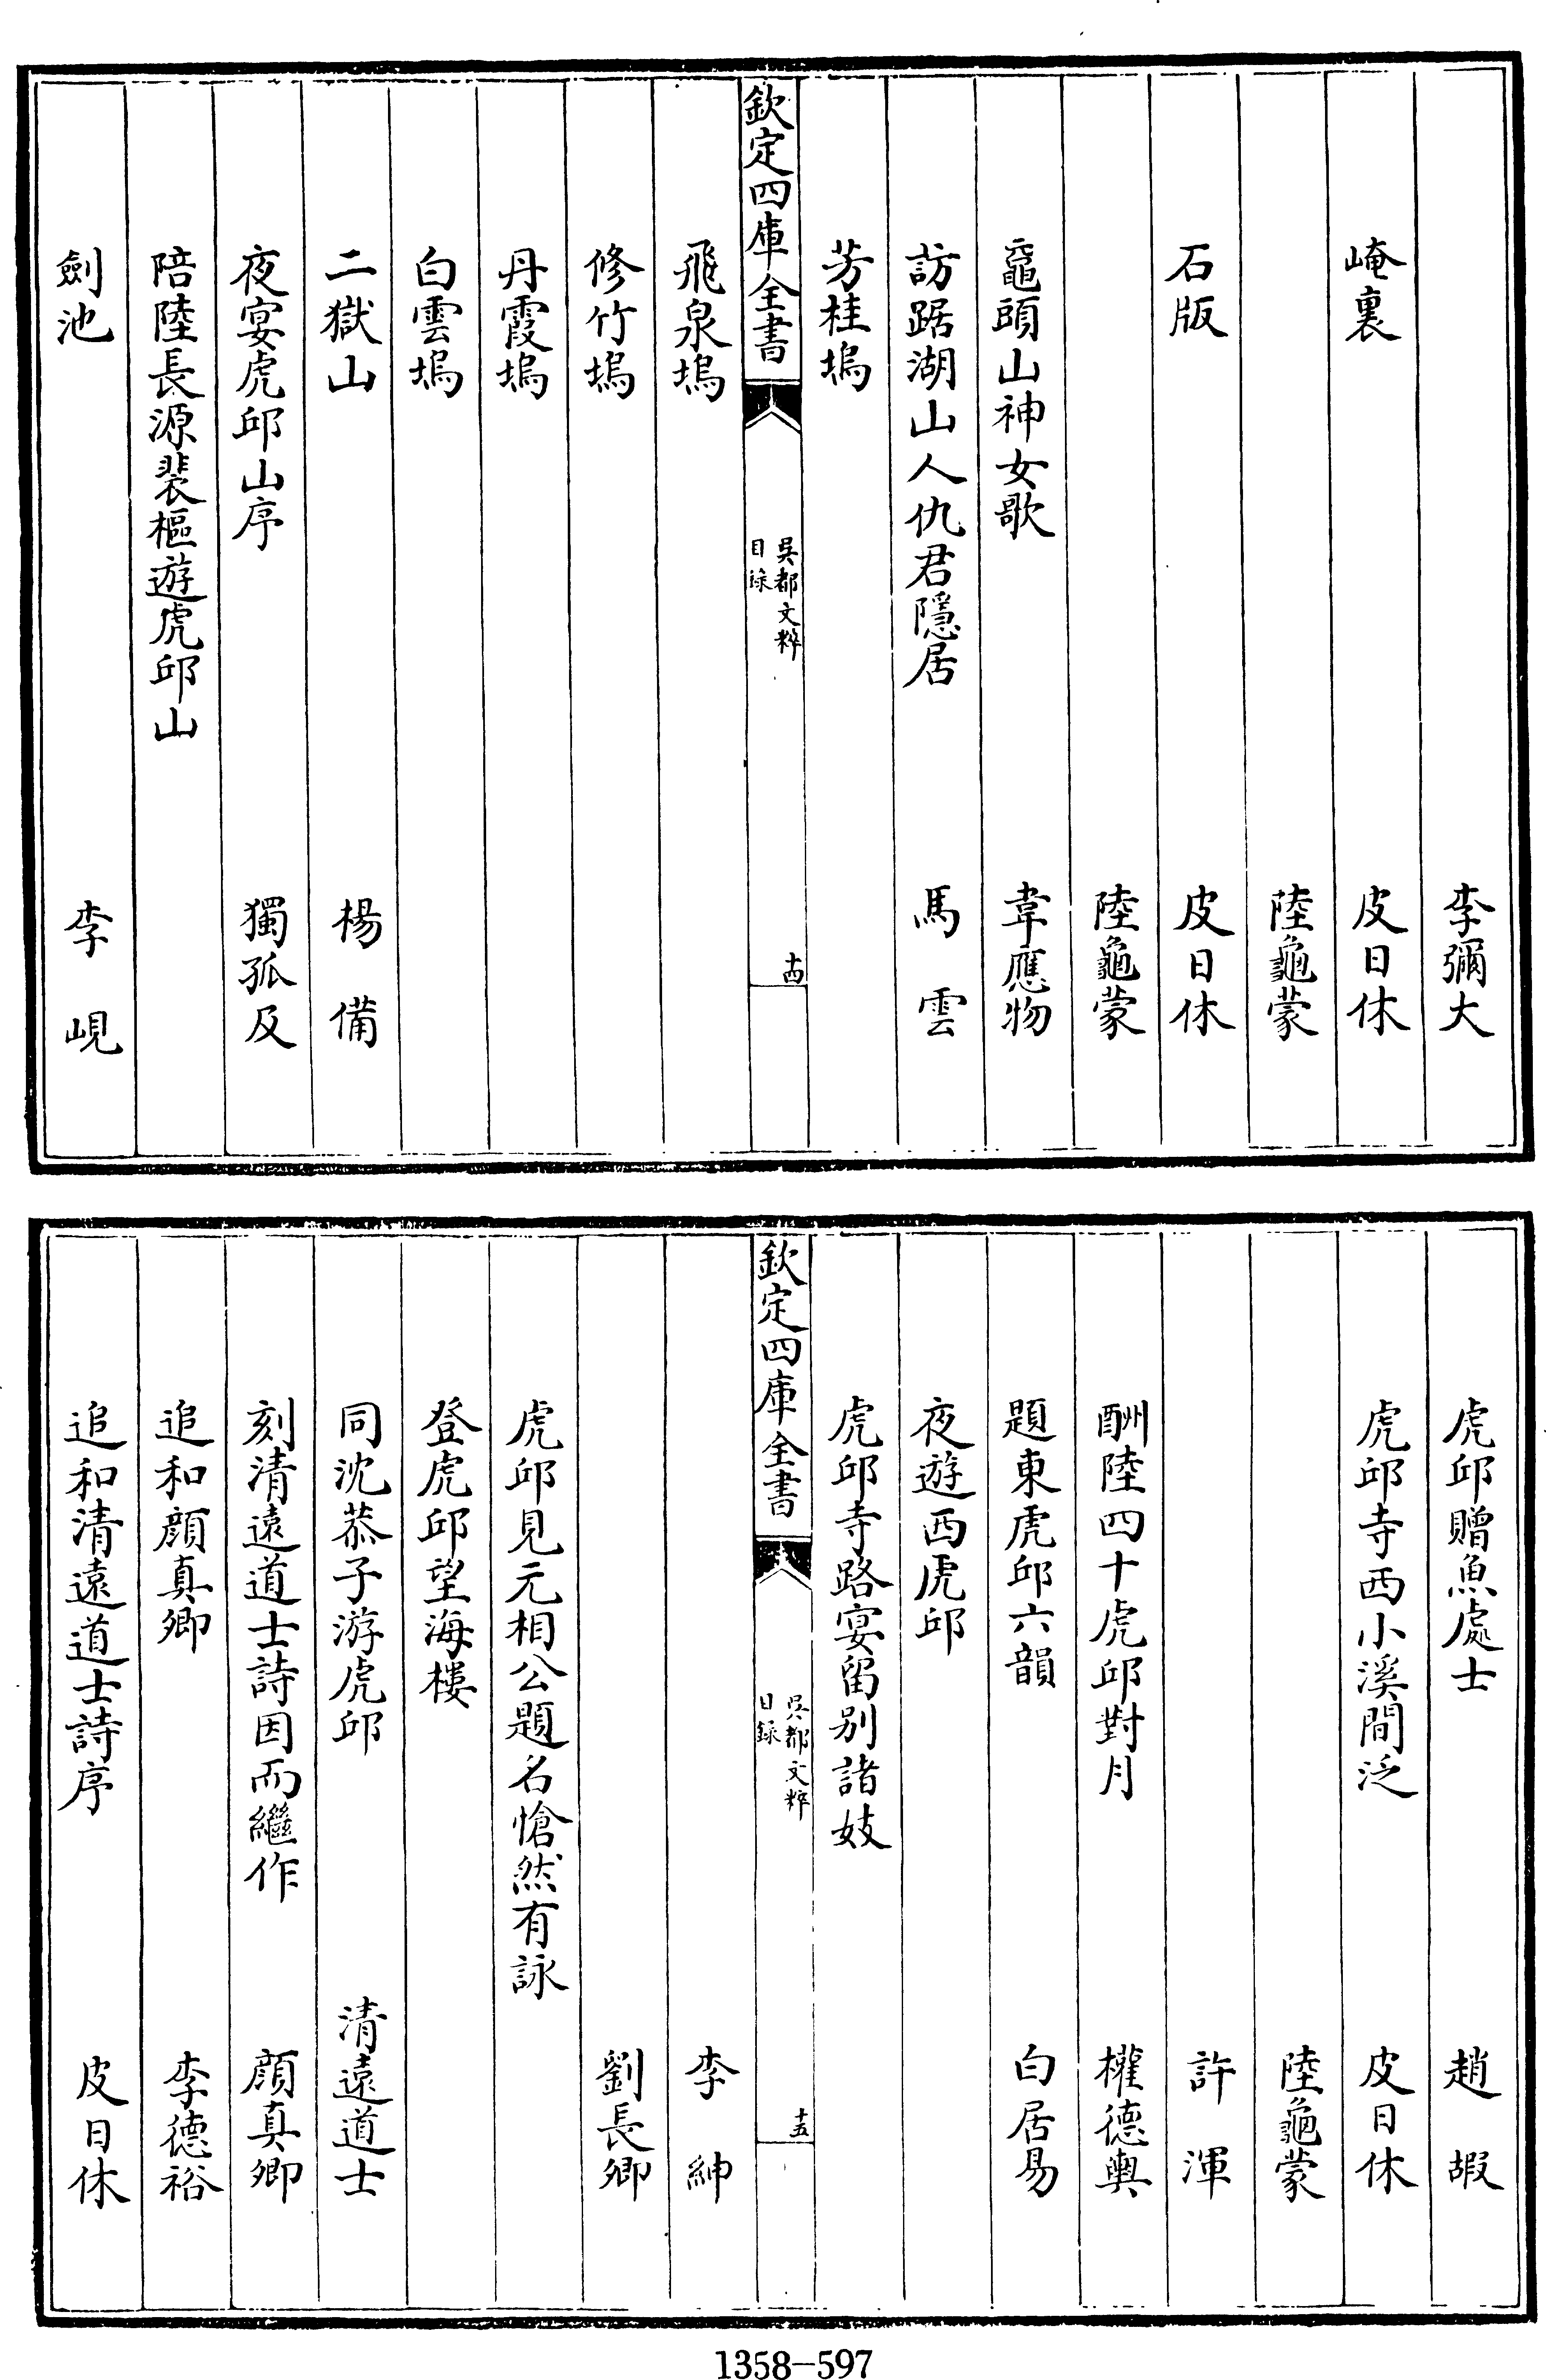 李彌大
崦裏　皮日休
陸龜蒙
石版　皮日休
陸龜蒙
黿頭山神女歌　韋應物
訪踞湖山人仇君隱居　馬雲
芳桂塢
欽定四庫全書　吳都文粹目錄　十四
飛泉塢
修竹塢
丹霞塢
白雲塢
二獄山　楊備
夜宴虎邱山序　獨孤及
陪陸長源裴樞遊虎邱山
劍池　李峴
虎邱贈魚處士　趙嘏
虎邱寺西小溪間泛　皮日休
陸龜蒙
許渾
酬陸四十虎邱對月　權德輿
題東虎邱六韻　白居易
夜遊西虎邱
虎邱寺路宴留別諸妓
欽定四庫全書　吳都文粹目錄　十五
李紳
劉長卿
虎邱見元相公題名愴然有詠
登虎邱望海樓
同沈恭子游虎邱　清遠道士
刻清遠道士詩因而繼作　顔真卿
追和顔真卿　李德裕
追和清遠道士詩序　皮日休
1358-597